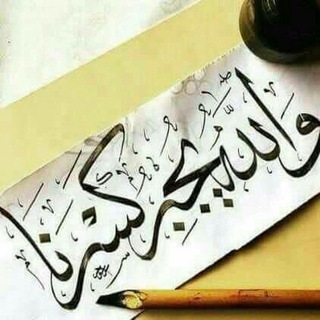 والله يجبر كسرنا